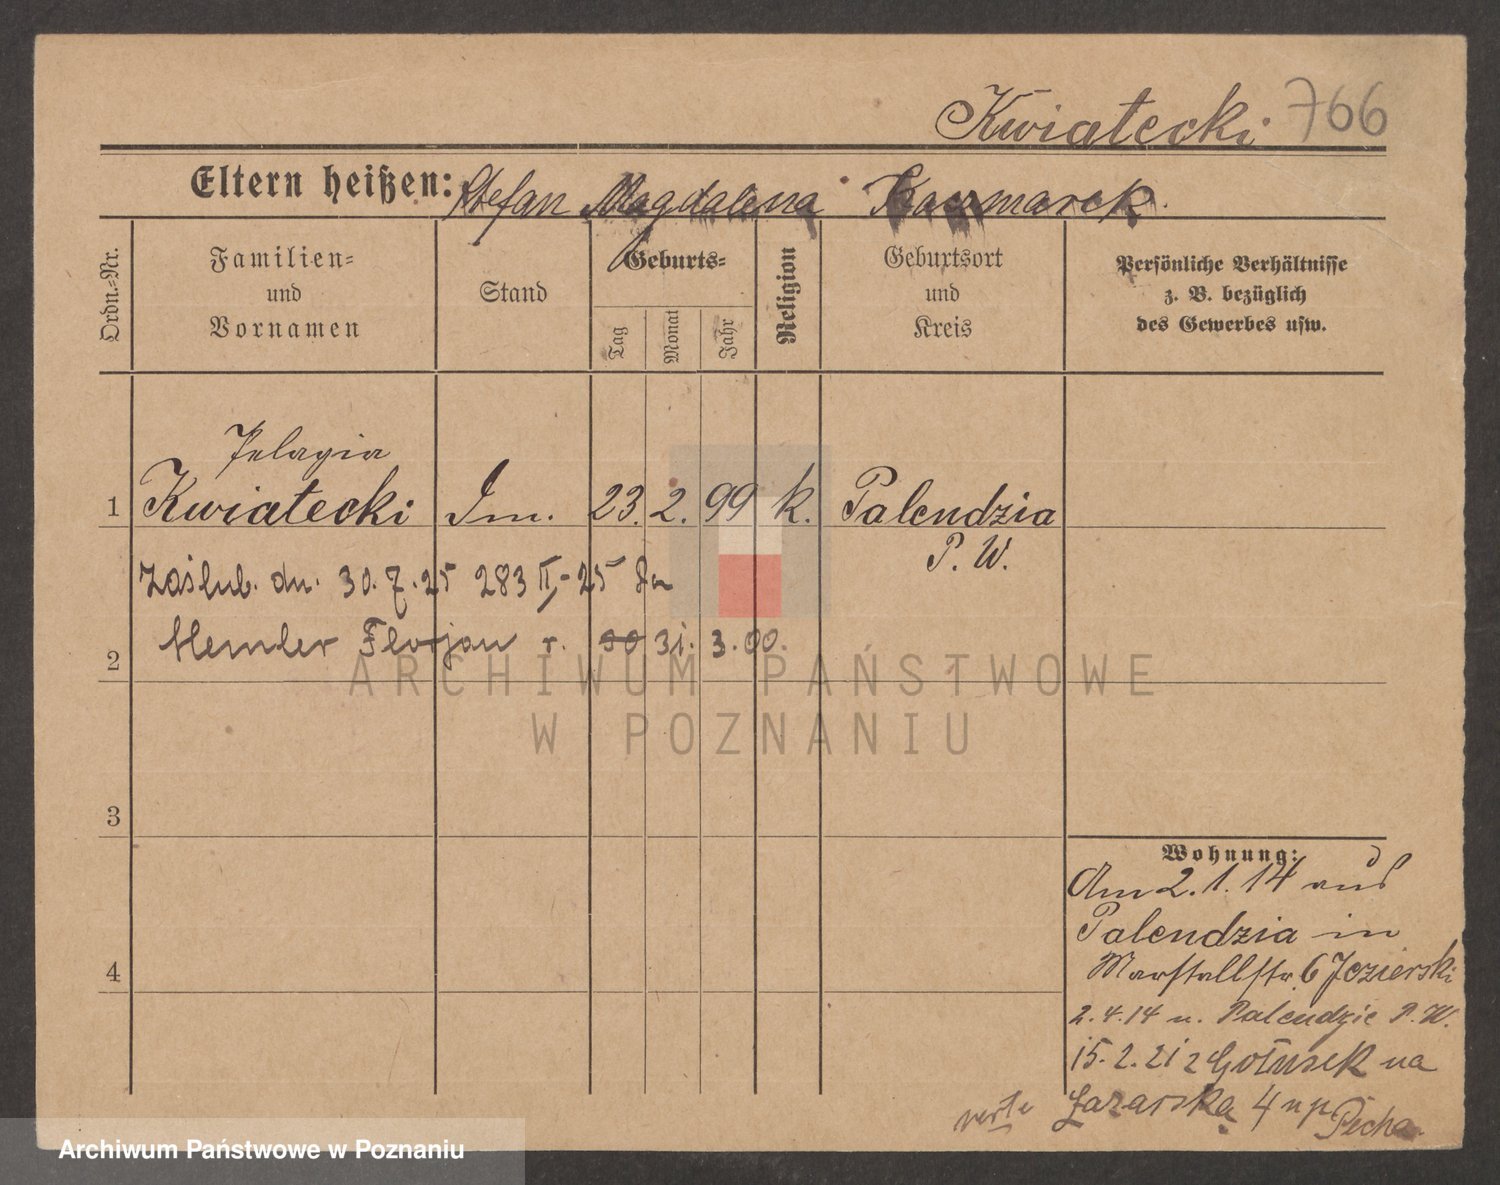 Kwiatecki 766
Eltern heißen: Stefan Magdalena Kaczmarek.
Ordn.-Nr.
Familien-
und
Vornamen
Stand
Geburts-
Tag
Monat
Jahr
Religion
Geburtsort
und
Kreis
Persönliche Verhältnisse
z. B. bezüglich
des Gewerbes usw.
Pelagia
1 Kwiatecki 23. 2. 99 k. Palendzia
P. W.
Zaślub. dn. 30. 7. 25 283 II-25
2 Florjan r. 00 31. 3. 00.
ARCHIWUM PAŃSTWOWE
W POZNANIU
3
4
Wohnung:
Am 2. 1. 14 aus
Palendzia in
Marstallstr. 6 Jezierski
2. 4. 14 n. Palendzie P. W.
15. 2. 21 z Gołusek na
Łazarska 4 u p Pecha
verte
Archiwum Państwowe w Poznaniu